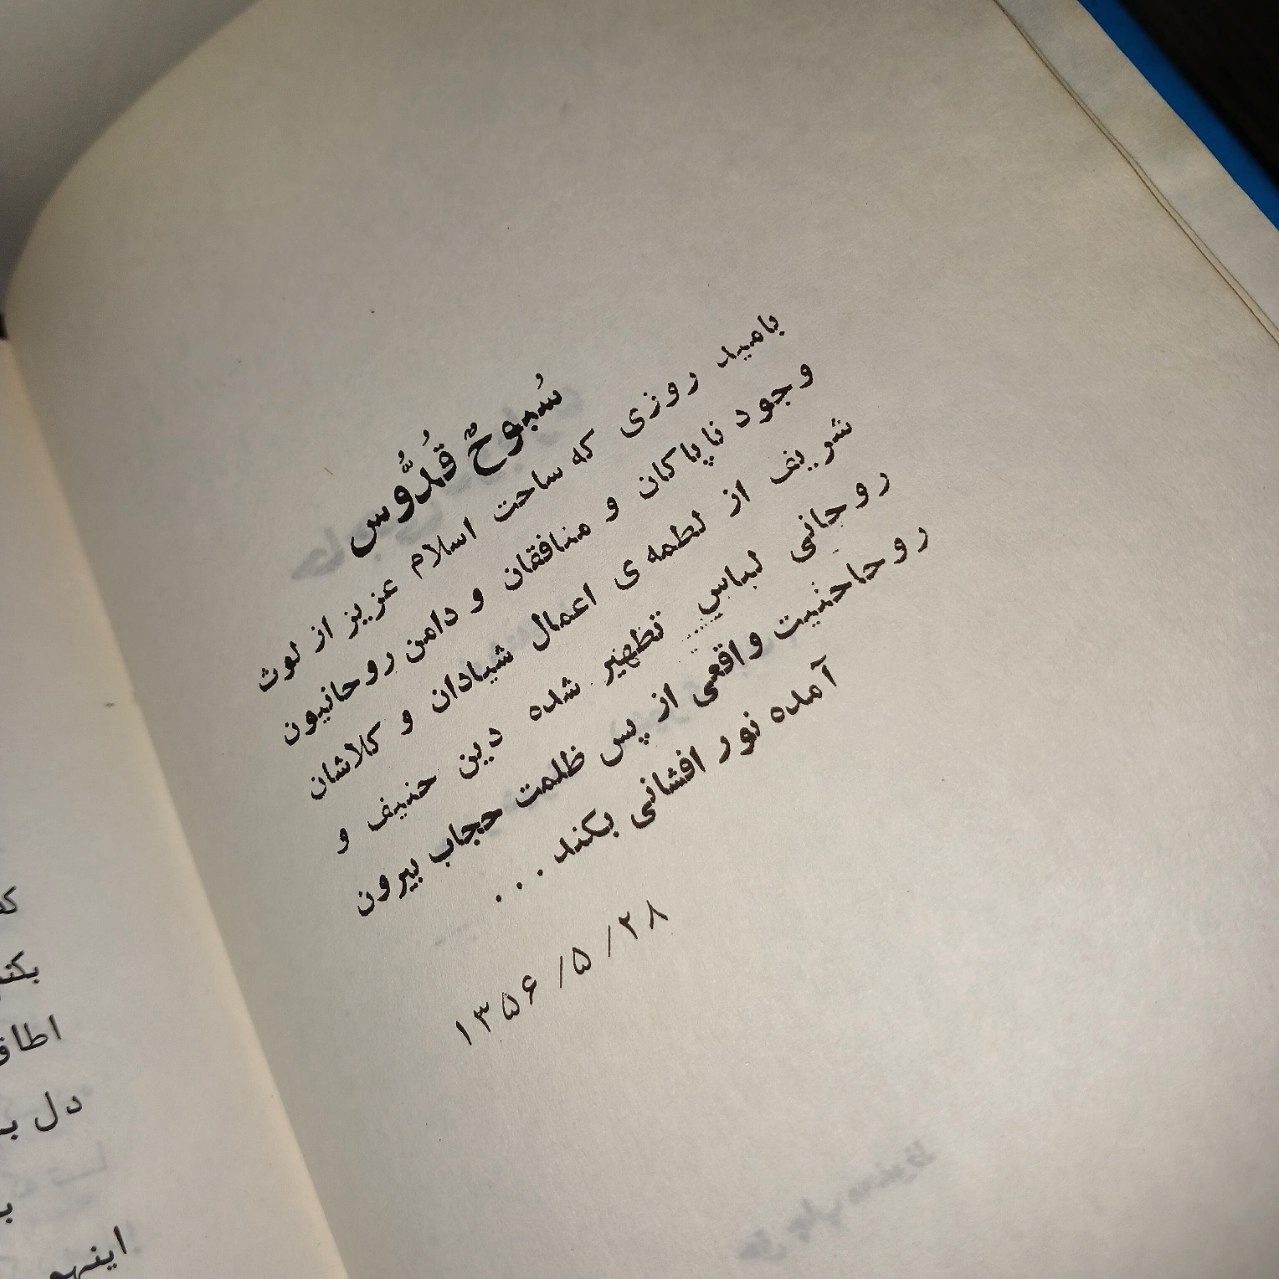 سُبوحٌ قُدُّوس
بامید روزی که ساحت اسلام عزیز از لوث
وجود ناپاکان و منافقان و دامن روحانیون
شریف از لطمه‌ی اعمال شیادان و کلاشان
روحانی لباس تطهیر شده دین حنیف و
روحاحنیت واقعی از پس ظلمت حجاب بیرون
آمده نور افشانی بکند...
۱۳۵۶/۵/۲۸
دل
اینهم